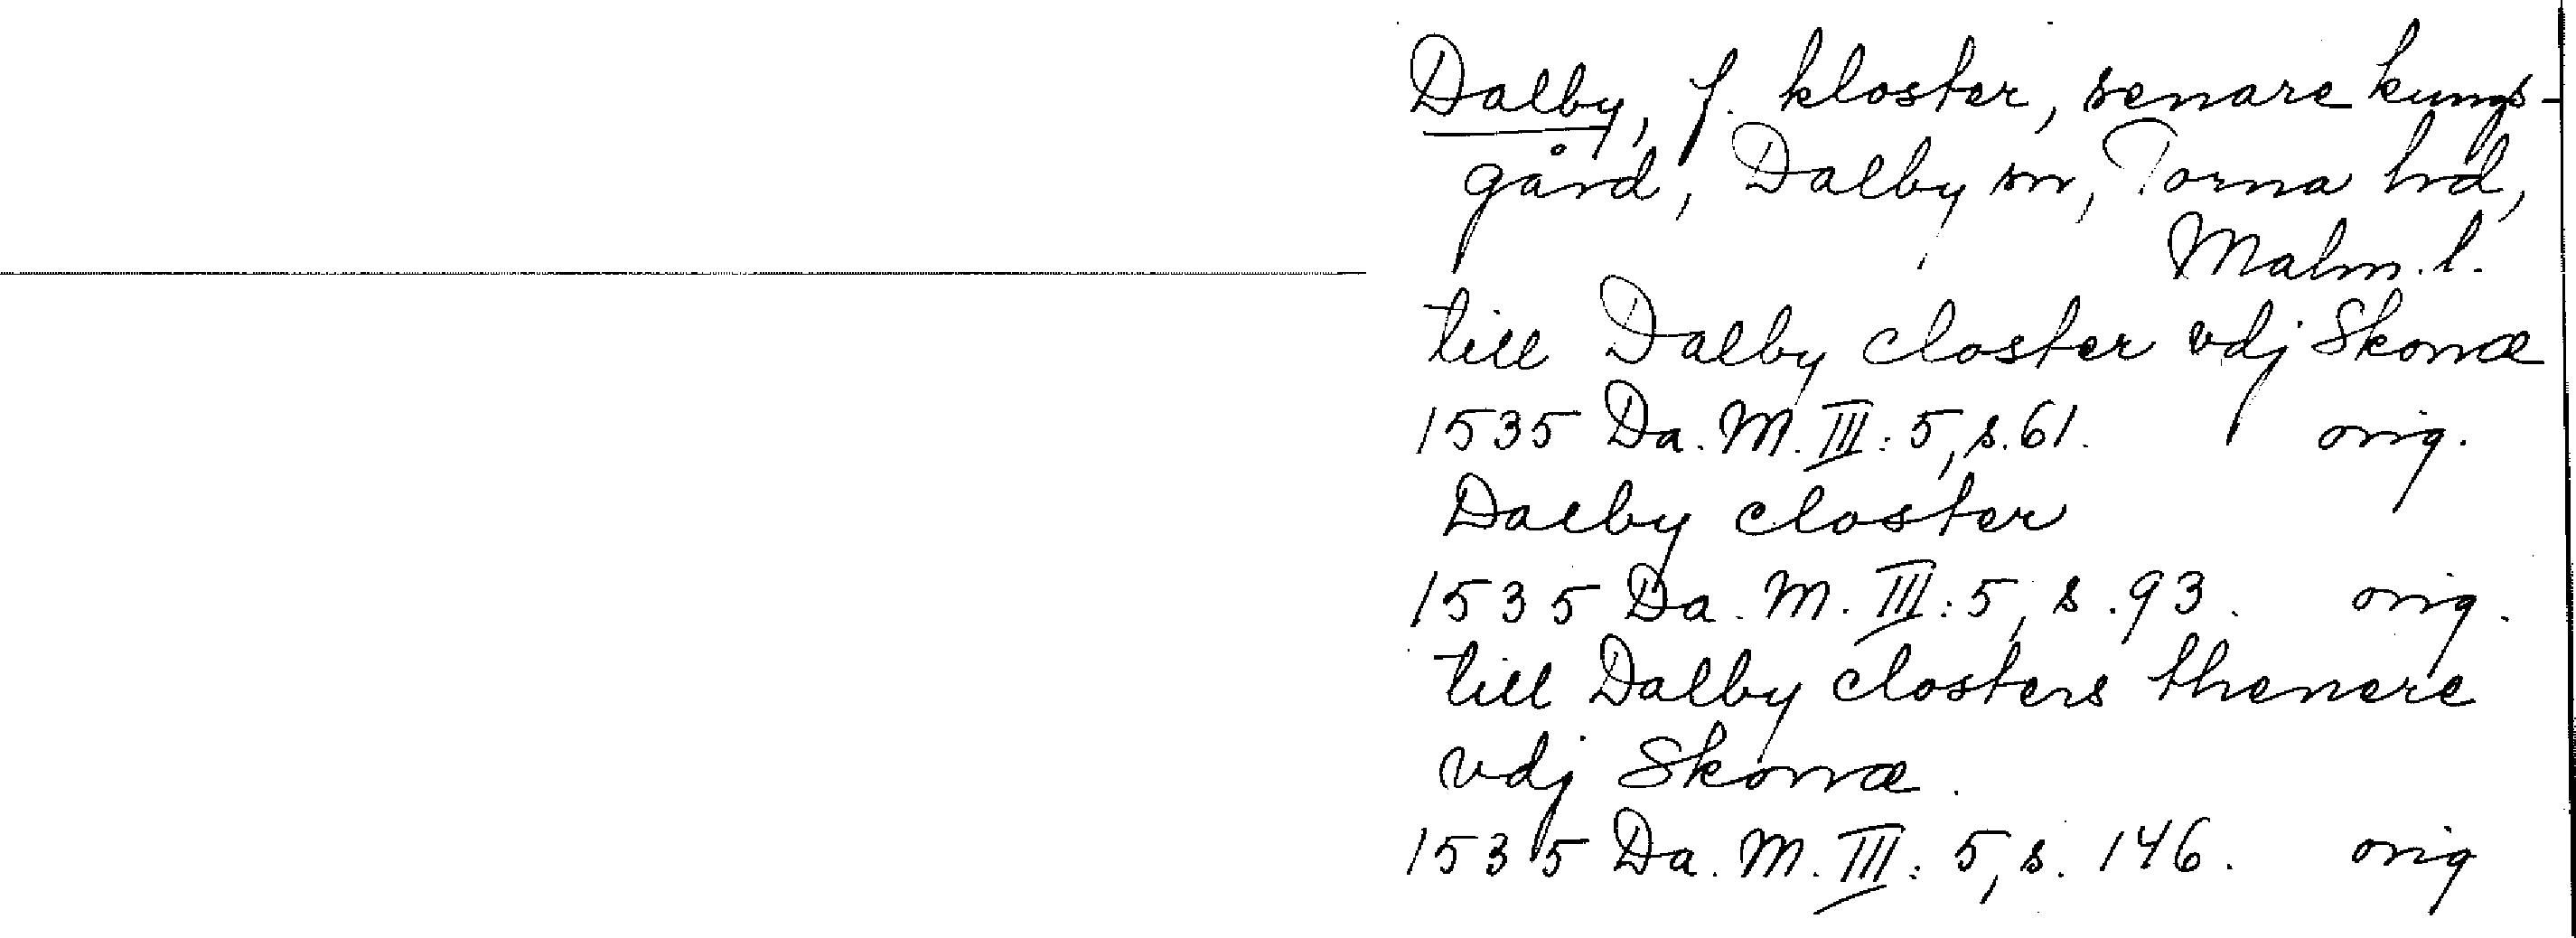 Dalby, f. kloster, senare kungs-
gård, Dalby sn, Torna hd,
Malm. l.
till Dalby closter vdj Skonæ
1535 Da. M. III: 5, s. 61. orig.
Dalby closter
1535 Da. M. III: 5, s. 93. orig.
till Dalby closters thenere
vdj Skonæ.
1535 Da. M. III: 5, s. 146. orig